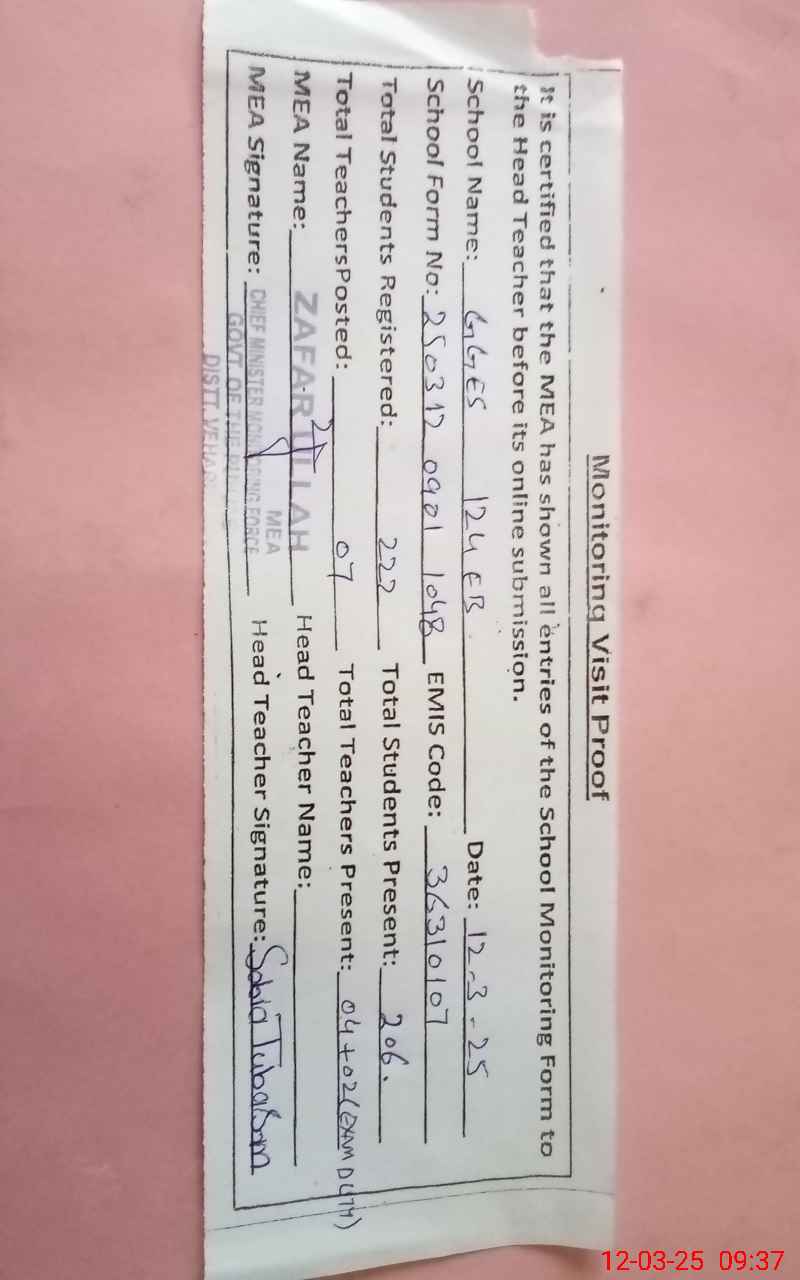 Monitoring Visit Proof
It is certified that the MEA has shown all entries of the School Monitoring Form to
the Head Teacher before its online submission.
School Name: GGES 124 EB Date: 12-3-25
School Form No: 250312 0901 1048 EMIS Code: 36310107
Total Students Registered: 222 Total Students Present: 206.
Total TeachersPosted: 07 Total Teachers Present: 04+02(EXAM DUTY)
MEA Name: ZAFAR ULLAH Head Teacher Name:
MEA
MEA Signature: CHIEF MINISTER MONITORING FORCE Head Teacher Signature: Sobia Tubasam
GOVT. OF THE
DISTT. VEHARI
12-03-25 09:37